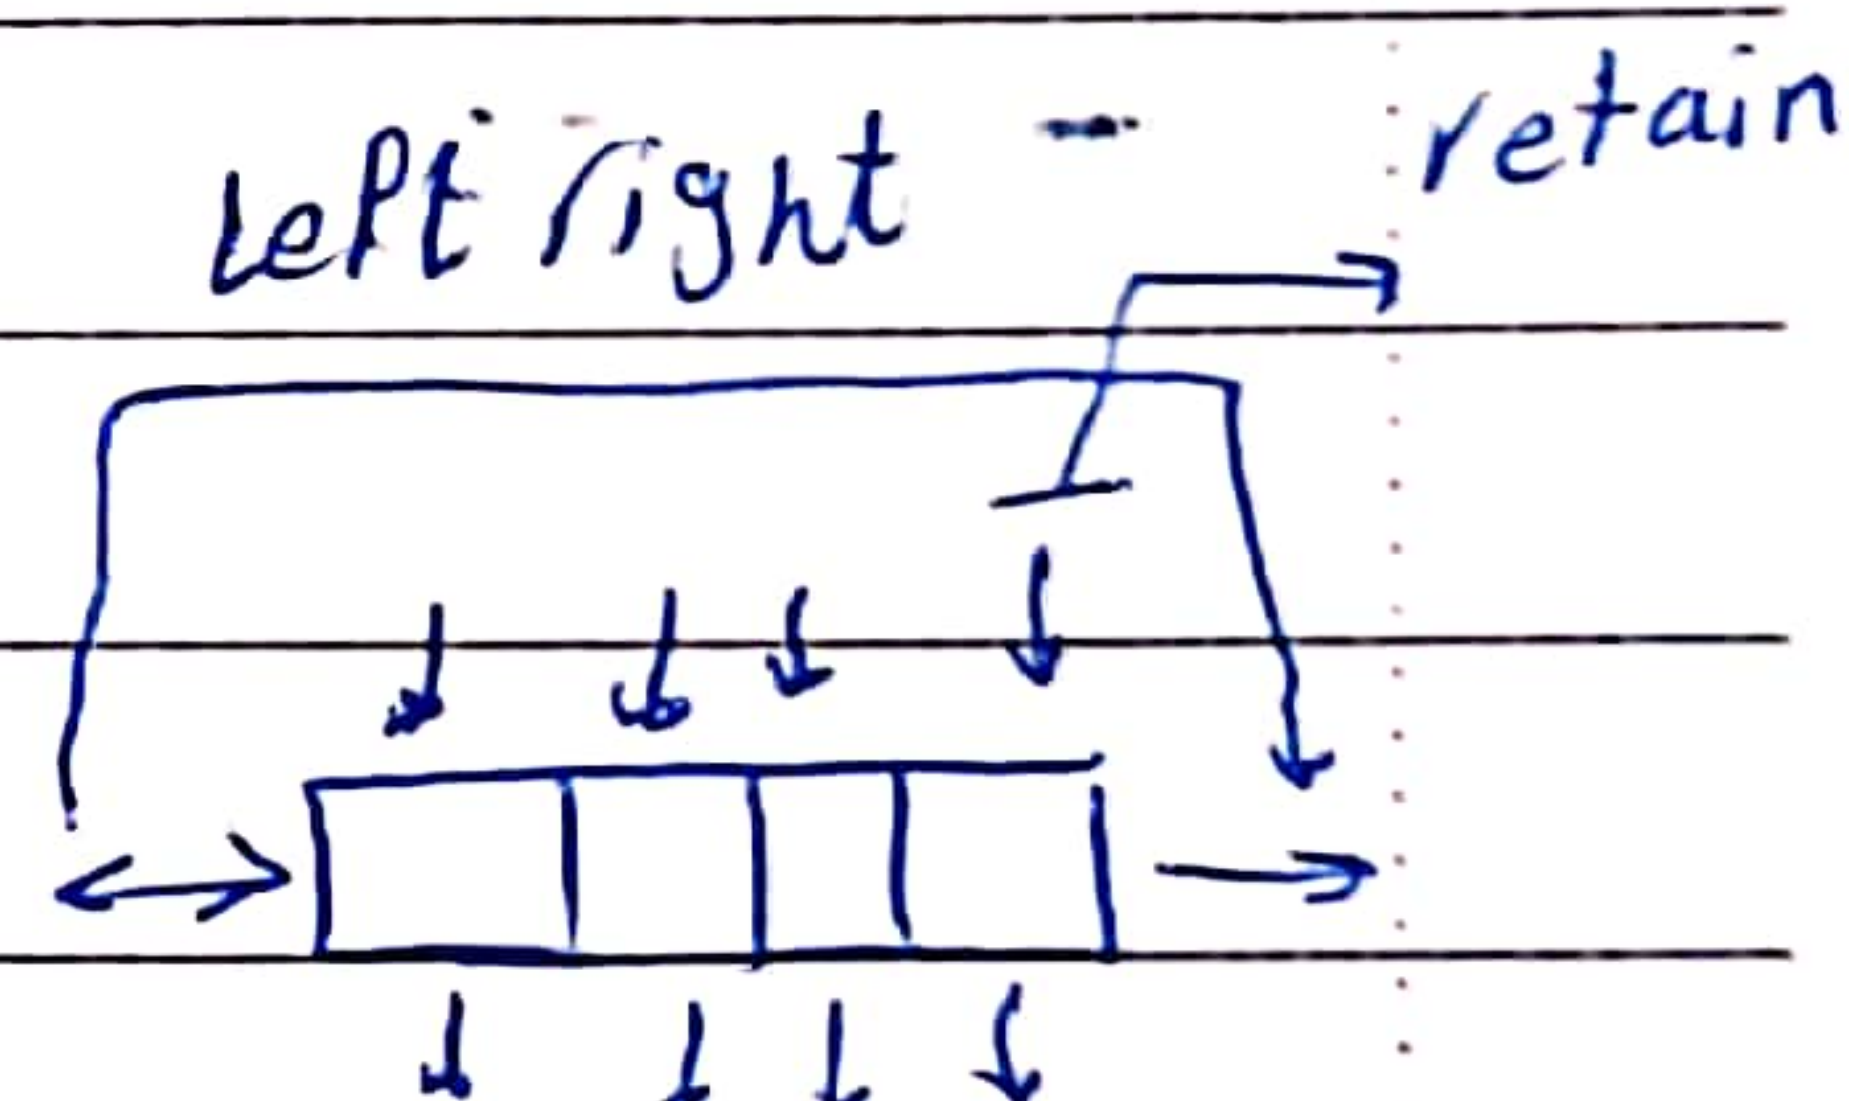 left right - retain